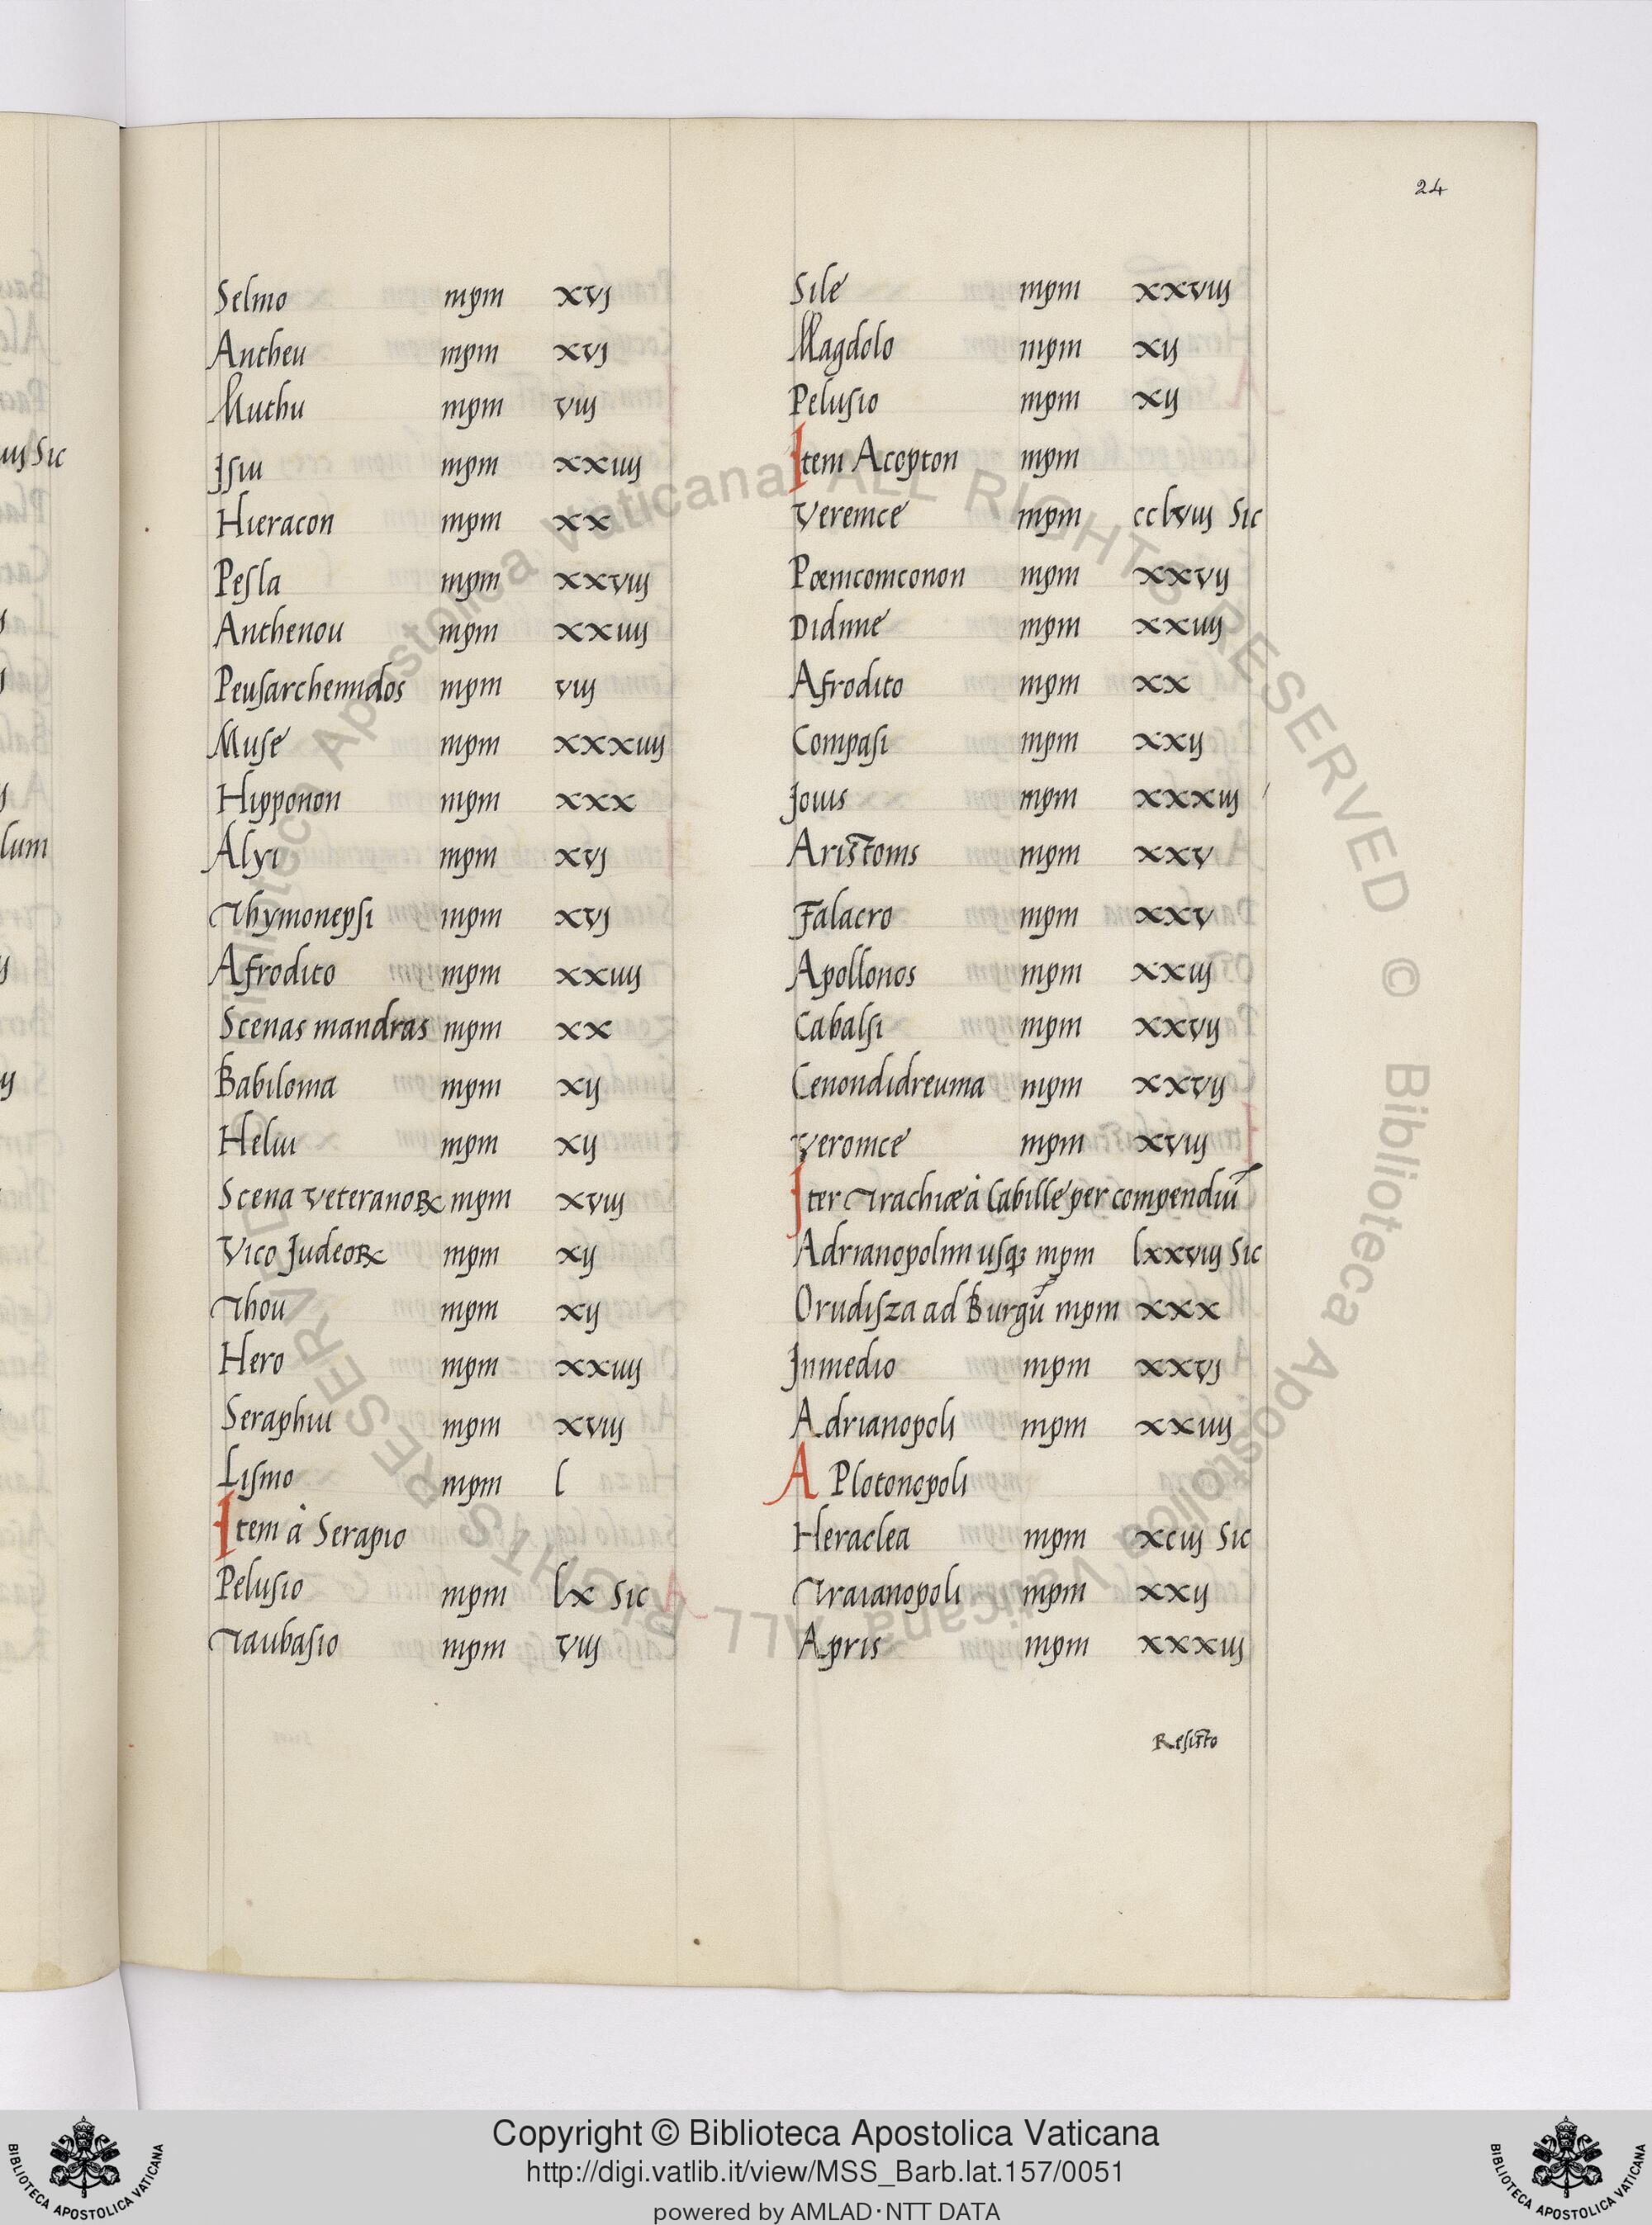 24
Selmo mpm xvj
Antheu mpm xvj
Muthu mpm viij
Jsiu mpm xxiiij
Hieracon mpm xx
Pesla mpm xxviij
Anthenou mpm xxiiij
Peusarchemidos mpm viij
Muse mpm xxxiiij
Hipponon mpm xxx
Alyi mpm xvj
Thymonepsi mpm xvj
Afrodito mpm xxiiij
Scenas mandras mpm xx
Babilonia mpm xij
Heliu mpm xij
Scena veteranoꝝ mpm xviij
Vico Judeoꝝ mpm xij
Thou mpm xij
Hero mpm xxiiij
Seraphiu mpm xviij
Lismo mpm l
Item à Serapio
Pelusio mpm lx sic
Taubasio mpm viij
Sile mpm xxviij
Magdolo mpm xij
Pelusio mpm xij
Item Acopton mpm
Verenice mpm cclviij sic
Pœnicomconon mpm xxvij
Didime mpm xxiiij
Afrodito mpm xx
Compasi mpm xxij
Jouis mpm xxxiij
Aristonis mpm xxv
Falacro mpm xxv
Apollonos mpm xxiij
Cabalsi mpm xxvij
Cenondidreuma mpm xxvij
Veronice mpm xviij
Iter Trachiæ à Cabille per compendiũ
Adrianopolim usqꝫ mpm lxxviij sic
Orudisza ad Burgũ mpm xxx
Jn medio mpm xxvj
Adrianopoli mpm xxiiij
A Plotonopoli
Heraclea mpm xciij sic
Traianopoli mpm xxij
Apris mpm xxxiij
Resisto
Copyright © Biblioteca Apostolica Vaticana
http://digi.vatlib.it/view/MSS_Barb.lat.157/0051
powered by AMLAD·NTT DATA